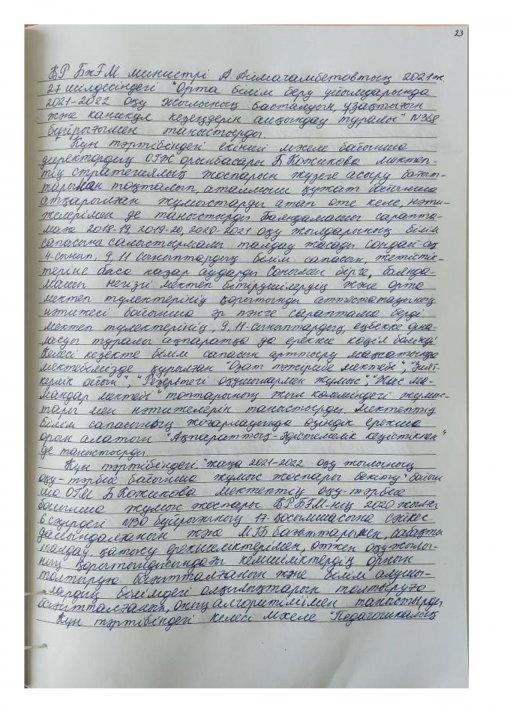 23
ҚР БжҒМ министрі А Аймагамбетовтың 2021ж
27 шілдесіндегі "Орта білім беру ұйымдарында
2021-2022 оқу жылының басталуын, ұзақтығын
және каникул кезеңдерін айқындау туралы" №368
бұйрығымен таныстырды
Күн тәртібіндегі екінші мәселе бойынша
директордың ОІЖ орынбасары Б Кожикова мектеп-
тің стратегиялық жоспарын жүзеге асыру бағыт-
тарымен тоқталып, аталмыш құжат бойынша
атқарылған жұмыстарды атап өте келе, нәти-
желерімен де таныстырды Баяндамашы сарапта-
маға 2018-19, 2019-20, 2020-2021 оқу жылдарының білім
сапасына салыстырмалы талдау жасады Сондай-ақ
4-сынып, 9, 11 сыныптардың білім сапасын, жетістік-
теріне баса назар аударды Сонымен бірге, баянда-
машы негізгі мектеп бітірушілердің және орта
мектеп түлектерінің қорытынды аттестатацияның
нәтижесі бойынша әр пәнге сараптама берді
мектеп түлектерінің, 9, 11-сыныптардың еңбекке орна-
ласуы туралы ақпаратқа да ерекше көңіл бөлінді
Келесі кезекте білім сапасын арттыру мақсатында
мектебімізде құрылған "Озат тәжірибе мектебі", "Зият-
керлік ойын", "Резервтегі оқушылармен жұмыс", "Жас ма-
мандар мектебі" топтарының жыл көлеміндегі жұмыс-
тары мен нәтижелерін таныстырды Мектептің
білім сапасының жоғарлауында өзіндік ерекше
орын алатын "Ақпараттық-әдістемелік кеңістікпен"
де таныстырды
Күн тәртібіндегі "жаңа 2021-2022 оқу жылының
оқу-тәрбие бойынша жұмыс жоспары бекіту" бойын
ша ОІЖ Б Кожикова мектептің оқу-тәрбие
бойынша жұмыс жоспары ҚР БҒМ-нің 2020 жылғы
6 сәуірдегі №130 бұйрығының 17-қосымшасына сәйкес
дайындалғанын және МІБ бағыттарымен, сабақты
талдау, қатысу ерекшеліктерімен, өткен оқу жылы-
ның қорытындысындағы кемшіліктердің орнын
толтыруға бағытталғанын және білім алушы-
лардың біліміндегі олқылықтарын толтыруға
бағытталғанын, оның алгоритмімен таныстырды
Күн тәртібіндегі келесі мәселе "Педагогикалық